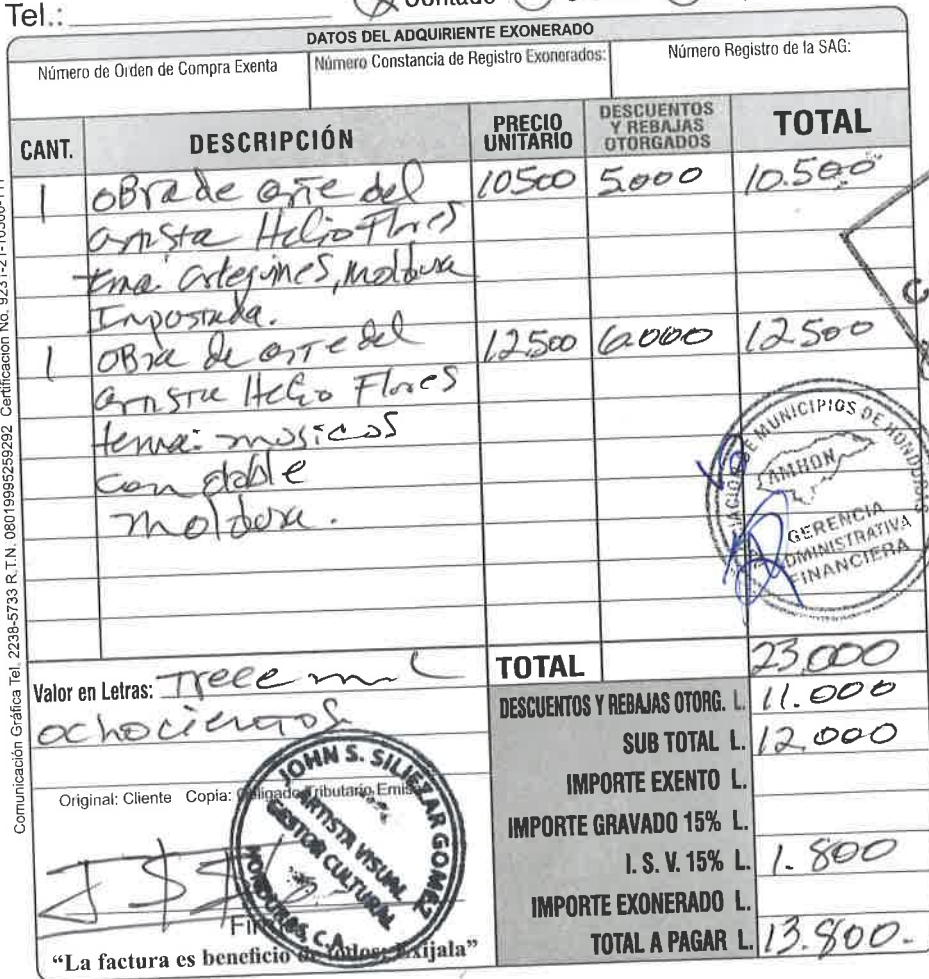 Tel.: Contado
DATOS DEL ADQUIRIENTE EXONERADO
Número de Orden de Compra Exenta Número Constancia de Registro Exonerados: Número Registro de la SAG:
CANT. DESCRIPCIÓN PRECIO UNITARIO DESCUENTOS Y REBAJAS OTORGADOS TOTAL
1 OBra de arte del 10500 5.000 10.500
artista Helio Flores
, moldura
1 OBra de arte del 12.500 6.000 12.500
artista Helio Flores
tema: musicos
con doble
moldura.
MUNICIPIOS DE HONDURAS
AMHON
GERENCIA
ADMINISTRATIVA
FINANCIERA
TOTAL 23,000
Valor en Letras: Trece mil
ochocientos
DESCUENTOS Y REBAJAS OTORG. L. 11.000
SUB TOTAL L. 12.000
IMPORTE EXENTO L.
IMPORTE GRAVADO 15% L.
I. S. V. 15% L. 1.800
IMPORTE EXONERADO L.
TOTAL A PAGAR L. 13.800.-
Original: Cliente Copia: Obligado Tributario Emisor
JOHN S. SILIEZAR GOMEZ
ARTISTA VISUAL
GESTOR CULTURAL
HONDURAS C.A.
"La factura es beneficio de todos, Exijala"
Comunicación Gráfica Tel. 2238-5733 R.T.N. 08019995259292 Certificación No.